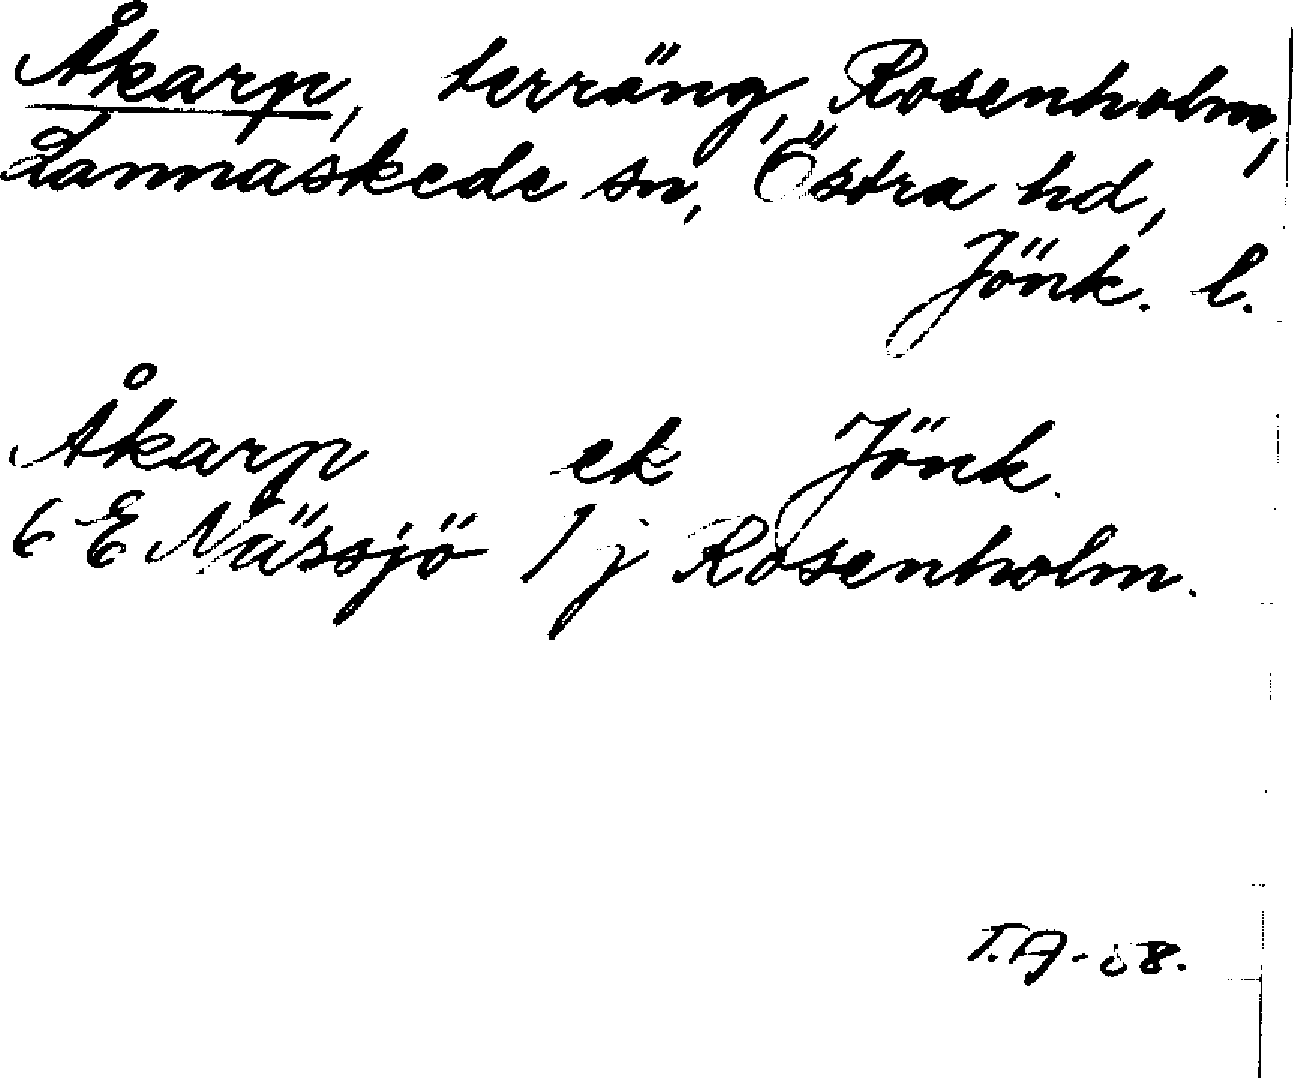 Åkarp, terräng, Rosenholm,
Lannaskede sn, Östra hd,
Jönk. l.
Åkarp ek Jönk.
6 E Nässjö 1 j Rosenholm.
T.A-